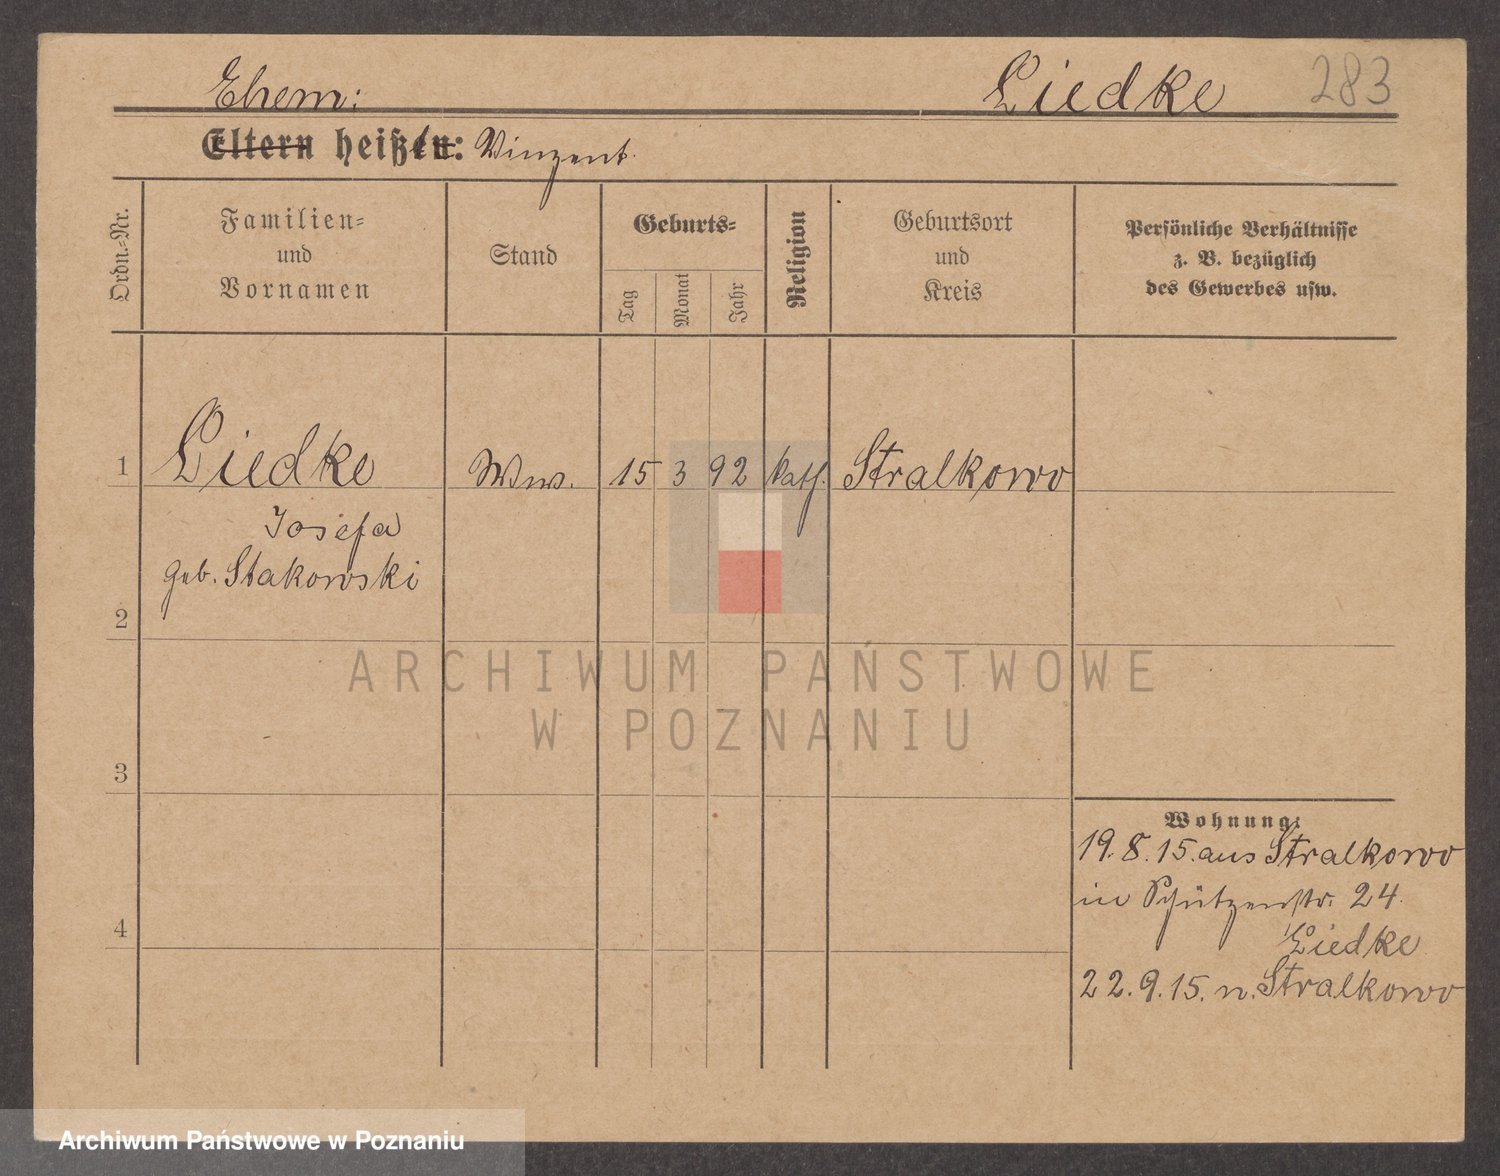 Ehem: Liedke 283
Eltern heißt: Vinzent.
Ordn.-Nr.
Familien-
und
Vornamen
Stand
Geburts-
Tag
Monat
Jahr
Religion
Geburtsort
und
Kreis
Persönliche Verhältnisse
z. B. bezüglich
des Gewerbes usw.
1 Liedke Ww. 15 3 92 kath. Stralkowo
Josefa
geb. Stakowski
2
3
4
Wohnung:
19.8.15. aus Stralkowo
in Schützenstr. 24.
Liedke
22.9.15. n. Stralkowo
ARCHIWUM PAŃSTWOWE
W POZNANIU
Archiwum Państwowe w Poznaniu